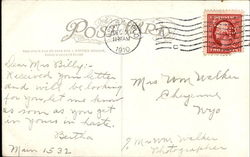 POST CARD
1910
Dear Mrs Billy:-
Received your letter
and will be looking
for you let me know
as soon as you get
in yours in haste
Bertha
Main 1532
Mrs. Wm Walker
Cheyenne
Wyo
Walker
Photographer